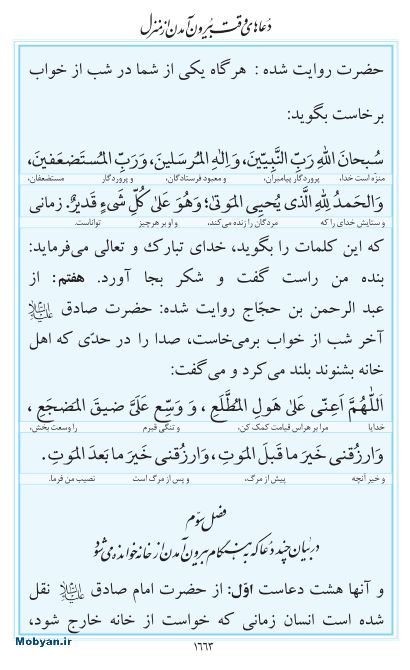 دعاهای وقت بیرون آمدن از منزل
حضرت روایت شده : هرگاه یکی از شما در شب از خواب
برخاست بگوید:
سُبحانَ اللهِ رَبِّ النَّبِیّینَ، وَاِلٰهِ المُرسَلینَ، وَرَبِّ المُستَضعَفینَ،
منزّه است خدا، پروردگار پیامبران، و معبود فرستادگان، و پروردگار مستضعفان،
وَالحَمدُ لِلّٰهِ الَّذی یُحیِی المَوتیٰ؛ وَهُوَ عَلیٰ کُلِّ شَیءٍ قَدیرٌ. زمانی
و ستایش خدای را که مردگان را زنده می‌کند، و او بر هر چیز تواناست.
که این کلمات را بگوید، خدای تبارک و تعالی می‌فرماید:
بنده من راست گفت و شکر بجا آورد. هفتم: از
عبد الرحمن بن حجّاج روایت شده: حضرت صادق علیه‌السلام
آخر شب از خواب برمی‌خاست، صدا را در حدّی که اهل
خانه بشنوند بلند می‌کرد و می‌گفت:
اَللّٰهُمَّ اَعِنّی عَلیٰ هَولِ المُطَّلَعِ ، وَ وَسِّع عَلَیَّ ضیقَ المَضجَعِ ،
خدایا مرا بر هراس قیامت کمک کن، و تنگی قبرم را وسعت بخش،
وَارزُقنی خَیرَ ما قَبلَ المَوتِ، وَارزُقنی خَیرَ ما بَعدَ المَوتِ.
و خیر آنچه پیش از مرگ، و پس از مرگ است نصیب من فرما.
فصل سوّم
در بیان چند دعا که به هنگام بیرون آمدن از خانه خوانده می‌شود
و آنها هشت دعاست اوّل: از حضرت امام صادق علیه‌السلام نقل
شده است انسان زمانی که خواست از خانه خارج شود،
۱۶۶۳
Mobyan.ir